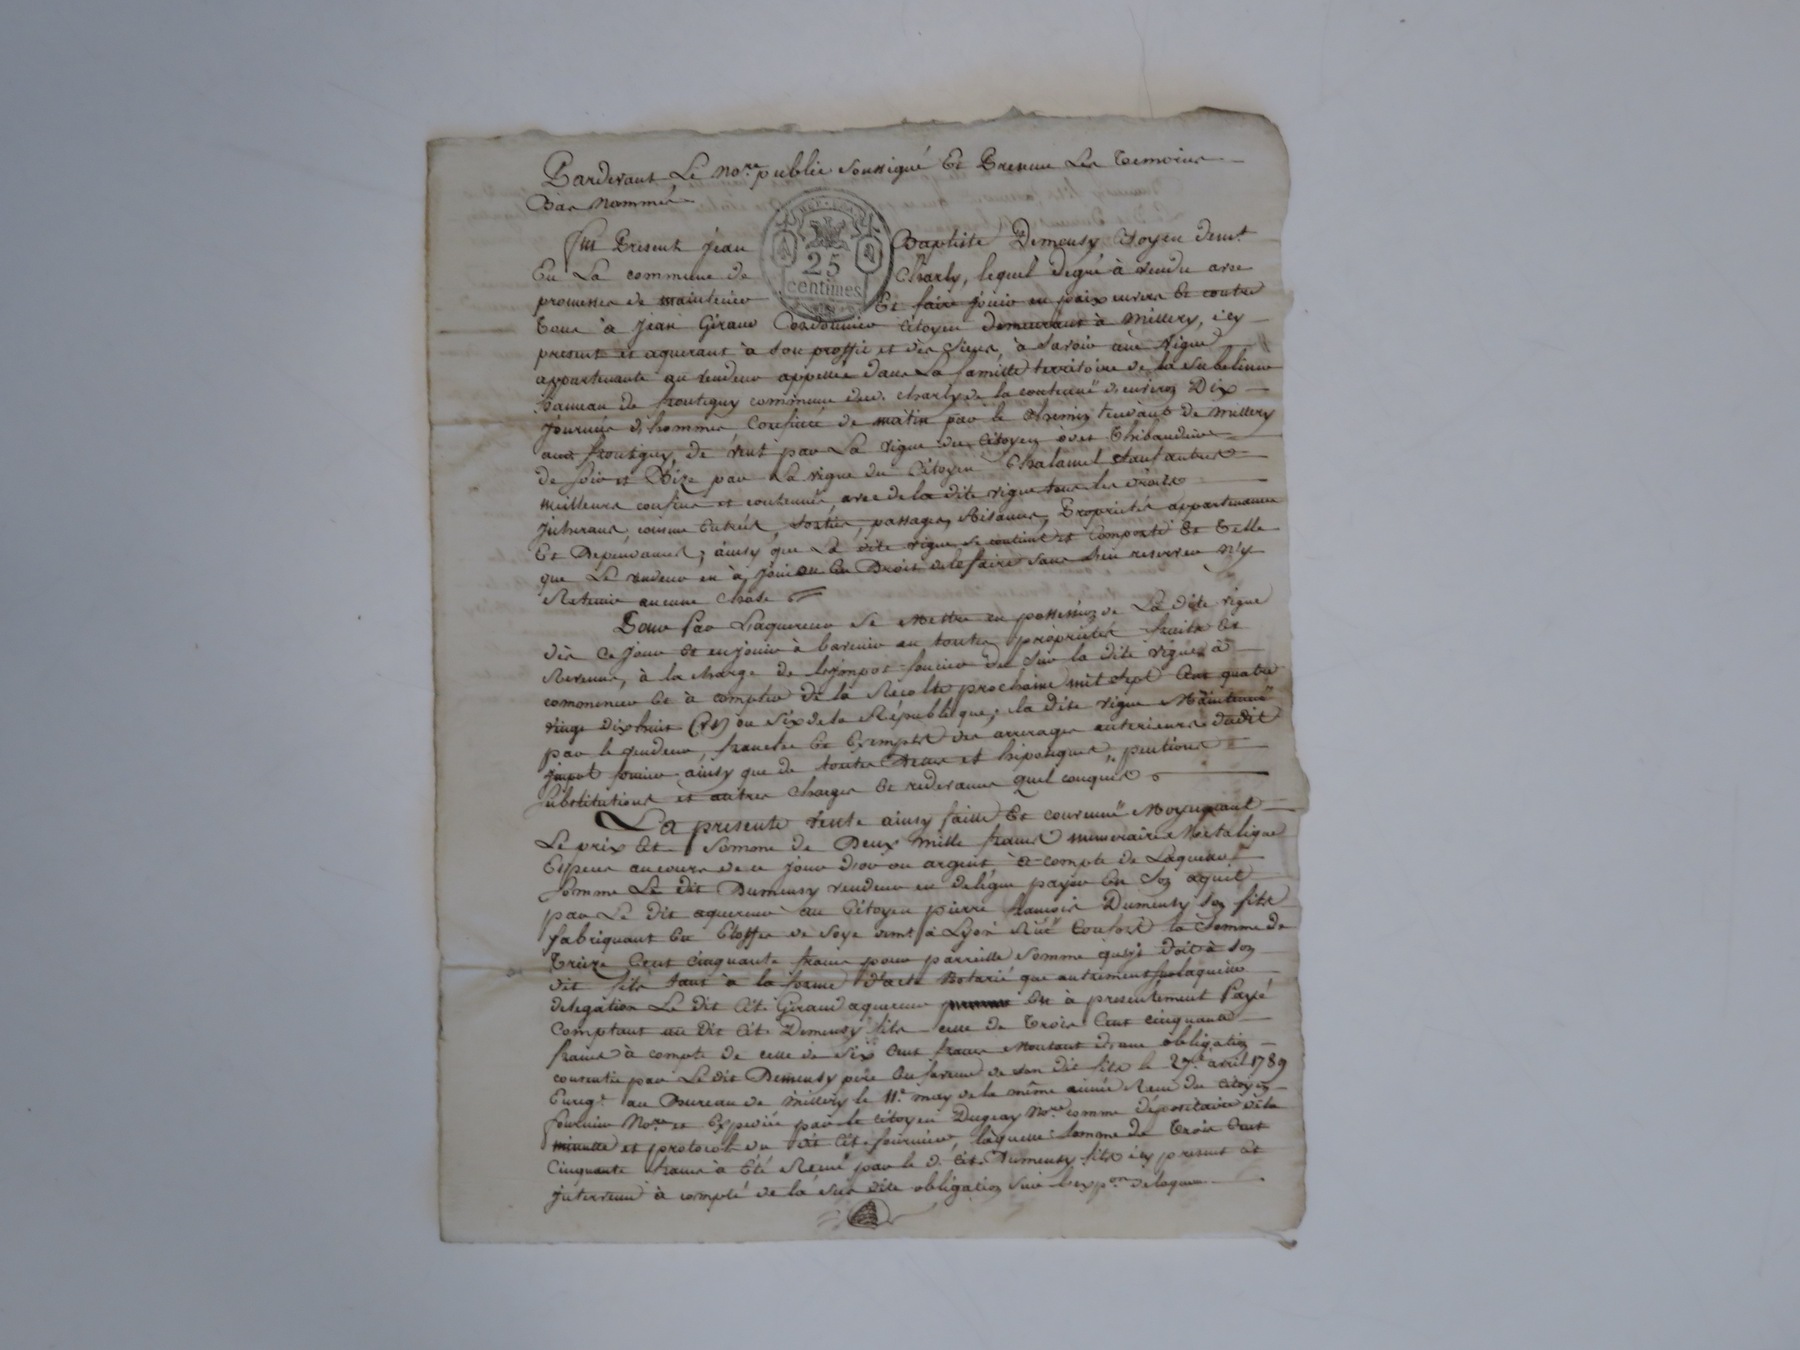 Pardevant Le no.re public soussigné Et Presence Les Temoins
Bas Nommés
REP. FRA.
25
centimes
fut Present jean Baptiste Demeusy Citoyen demt.
En La commune de Charly, lequel degré à vendu avec
promesses de maintenir Et faire jouir en paix envers Et contre
Tous à jean Giraud Cordonnier Citoyen demeurant à Millery, icy
present et aquerant à son proffit et des siens, à savoir une vigne
appartenante au vendeur appellée dans La famille territoire de la
hameau de frontigny commune dud. Charly de la contenue d'environ Dix
journées d'hommes Confinée de matin par le Chemin tendant de Millery
aud. frontigny, de vent par La vigne du Citoyen Thibaudier
de soir et Bize par La vigne du Citoyen Chalamel sauf autres
meilleurs confins et contenues, avec de la dite vigne tous les droits
juherans, comme Entrées, sorties, passages, Aisances, Proprietés appartenances
Et Dependances, ainsy que La dite vigne se contient et Comporte Et Telle
que Le vendeur en à joui ou Eu Droit de le faire sans Rien reserver n'y
Retenir aucune Chose
Pour Par Laquereur se Mettre en possession de La dite vigne
dès Ce jour Et en jouir à L'avenir en toutes proprietés fruits Et
Revenus, à la charge de l'impot foncier du sur la dite vigne à
commencer Et à compter de la Recolte prochaine mil sept Cent quatre
vingt dix huit (vs) ou Six de la République; la dite vigne Maintenüe
par le vendeur, franche Et Exempte des arrerages anterieurs dudit
impot foncier ainsy que de toutes Dettes et hipoteques, pentions
substitutions et autres charges Et redevances quel conques
La presente vente ainsy faitte Et convenuë Moyennant
Le prix Et Somme de Deux Mille francs numeraire Metalique
Especes au cours de ce jour d'or ou argent à compte de Laquelle
somme Le dit Dumeusy vendeur en delégue payer En Son aquit
par Le dit aquereur au Citoyen pierre francois Dumeusy son fils
fabriquant En Etoffes de Soye demt. à Lyon Rüe Confort la Somme de
Treize Cent cinquante francs pour parreille Somme qu'il doit à son
dit fils tant à la forme d'acte Notarié que autrement sur laquelle
delegation Le dit Cit. Giraud aquereur En à presentement Payé
Comptant au dit Cit. Demeusy fils celle de Trois Cent cinquante
francs à compte de celle de Six Cent francs Montant d'une obligation
consentie par Le dit Demeusy père En faveur de son dit fils le 27.e avril 1789
Enregt. au Bureau de Millery le 11.e may de la même année Reçu du Citoyen
fournier Nore. et Expediée par le Citoyen Dugeay Nore. comme dépositaire de la
minutte et protocole du dit Cit. fournier, laquelle somme de Trois Cent
Cinquante francs à Eté Reçuë par le d. Cit. Dumeusy fils icy present Et
intervenu à compte de la sus dite obligation sur l'expon. de laquelle